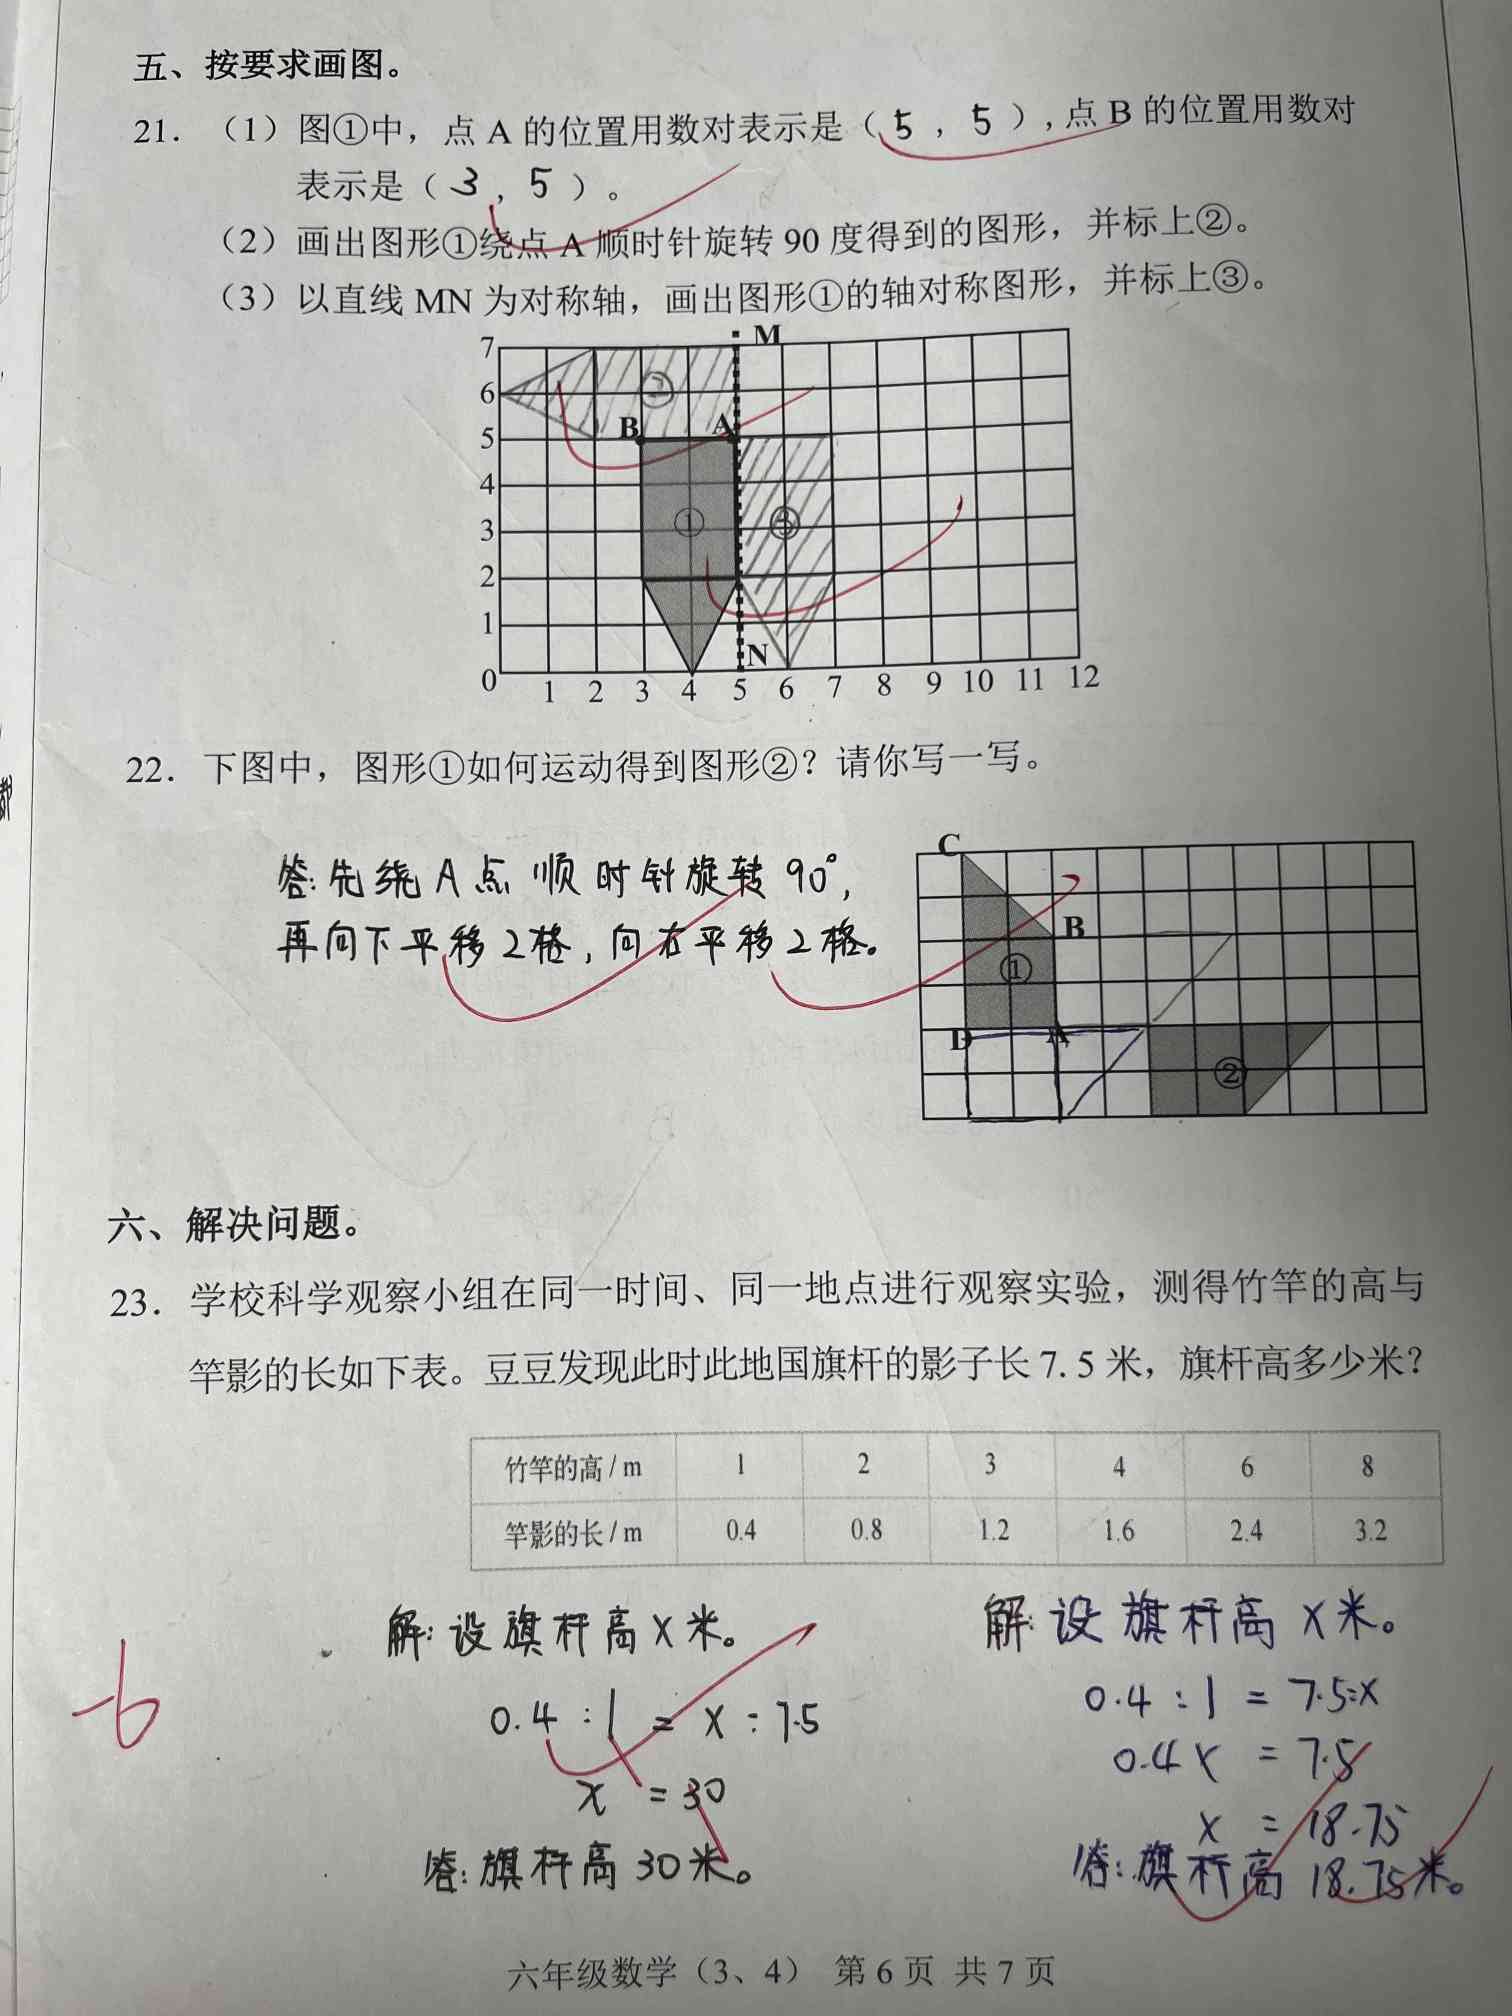 五、按要求画图。
21. （1）图①中，点 A 的位置用数对表示是（ 5 ， 5 ），点 B 的位置用数对
表示是（ 3 ， 5 ）。
（2）画出图形①绕点 A 顺时针旋转 90 度得到的图形，并标上②。
（3）以直线 MN 为对称轴，画出图形①的轴对称图形，并标上③。
7 M
6 ②
5 B A
4
3 ① ③
2
1
N
0 1 2 3 4 5 6 7 8 9 10 11 12
22. 下图中，图形①如何运动得到图形②？请你写一写。
答:先绕A点顺时针旋转90°,
再向下平移2格,向右平移2格。
C
B
①
D A
②
六、解决问题。
23. 学校科学观察小组在同一时间、同一地点进行观察实验，测得竹竿的高与
竿影的长如下表。豆豆发现此时此地国旗杆的影子长 7.5 米，旗杆高多少米？
竹竿的高/m 1 2 3 4 6 8
竿影的长/m 0.4 0.8 1.2 1.6 2.4 3.2
解:设旗杆高x米。
0.4:1=x:7.5
x=30
答:旗杆高30米。
解:设旗杆高x米。
0.4:1=7.5:x
0.4x=7.5
x=18.75
答:旗杆高18.75米。
-6
六年级数学（3、4） 第 6 页 共 7 页